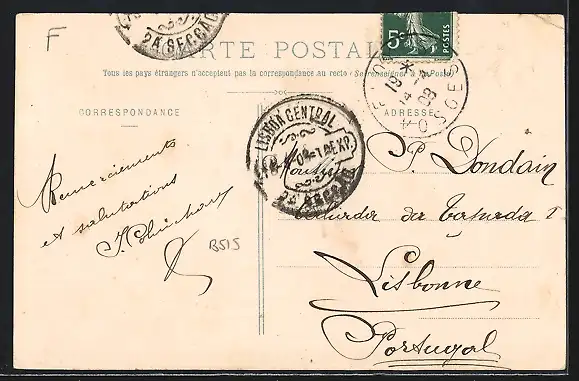 F
2A SECCAO
CARTE POSTALE
Tous les pays étrangers n'acceptent pas la correspondance au recto (Se renseigner à la Poste)
5c
CORRESPONDANCE
ADRESSE
LISBOA CENTRAL
2A SECCAO
Remerciements
et salutations
B515
P. Dondain
da Tapada
Lisbonne
Portugal